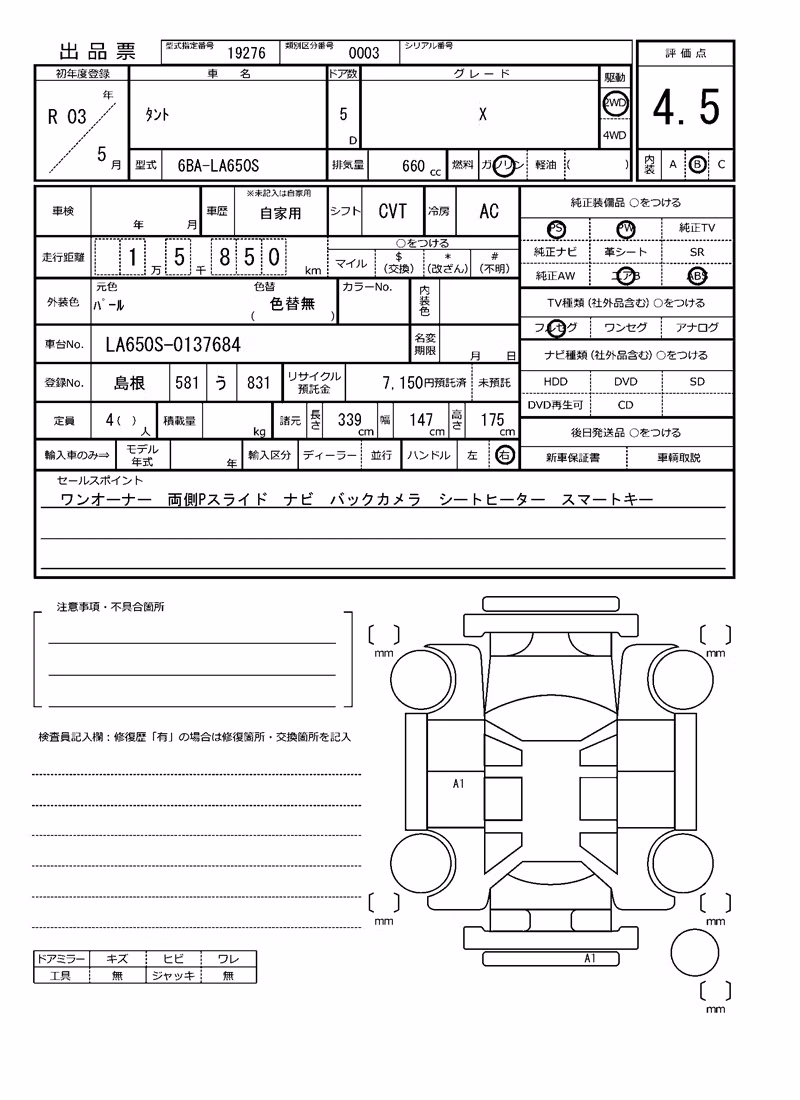 出品票 型式指定番号 19276 類別区分番号 0003 シリアル番号
評価点
4.5
初年度登録 車名 ドア数 グレード 駆動
R 03 年 5 月
タント 5 D X 2WD
4WD
型式 6BA-LA650S 排気量 660 cc 燃料 ガソリン 軽油 ( )
内装 A B C
車検 年 月 車歴 ※未記入は自家用 自家用 シフト CVT 冷房 AC
走行距離 1 万 5 千 8 5 0 km
○をつける
マイル $ (交換) * (改ざん) # (不明)
外装色 元色 パール 色替 ( 色替無 ) カラーNo. 内装色
車台No. LA650S-0137684 名変期限 月 日
登録No. 島根 581 う 831 リサイクル預託金 7,150円預託済 未預託
定員 4( ) 人 積載量 kg 諸元 長さ 339 cm 幅 147 cm 高さ 175 cm
輸入車のみ⇒ モデル年式 年 輸入区分 ディーラー 並行 ハンドル 左 右
純正装備品 ○をつける
PS PW 純正TV
純正ナビ 革シート SR
純正AW エアB ABS
TV種類(社外品含む)○をつける
フルセグ ワンセグ アナログ
ナビ種類(社外品含む)○をつける
HDD DVD SD
DVD再生可 CD
後日発送品 ○をつける
新車保証書 車輌取説
セールスポイント
ワンオーナー 両側Pスライド ナビ バックカメラ シートヒーター スマートキー
注意事項・不具合箇所
検査員記入欄:修復歴「有」の場合は修復箇所・交換箇所を記入
ドアミラー キズ ヒビ ワレ
工具 無 ジャッキ 無
mm mm
A1
mm mm
A1
mm